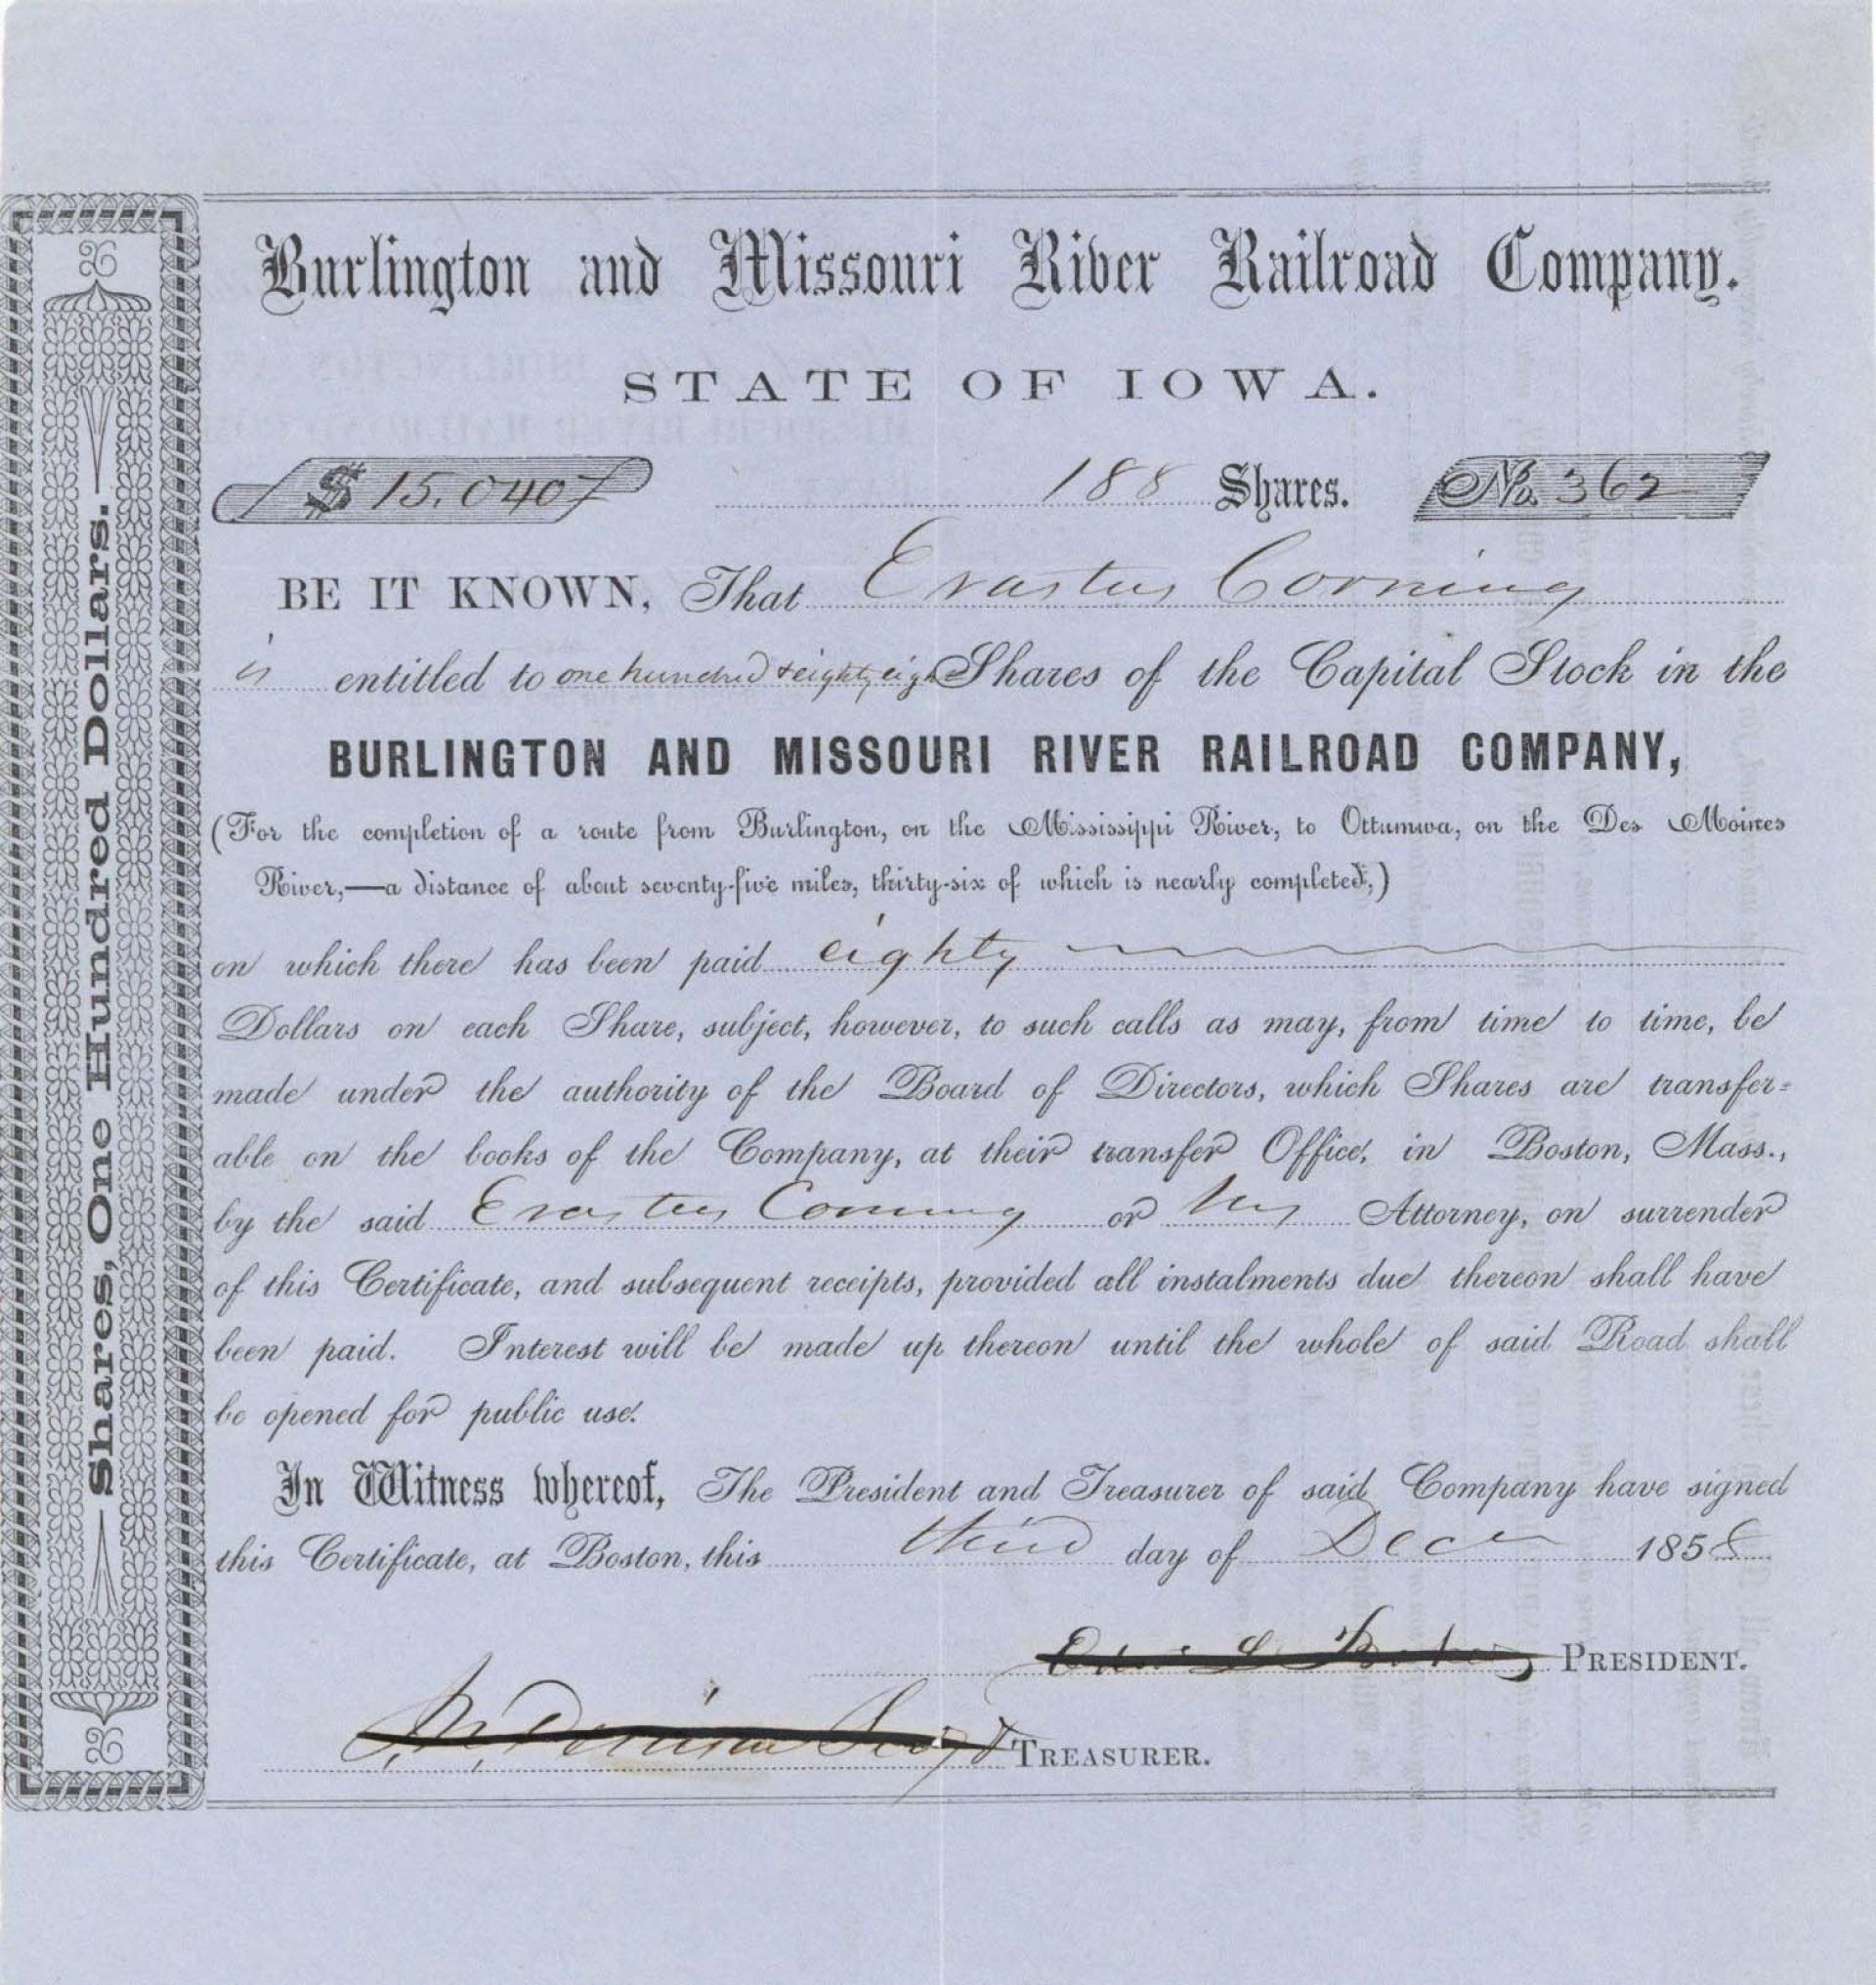 Burlington and Missouri River Railroad Company.
STATE OF IOWA.
$ 15.040 188 Shares. No. 362
BE IT KNOWN, That Erastus Corning
is entitled to one hundred & eighty eight Shares of the Capital Stock in the
BURLINGTON AND MISSOURI RIVER RAILROAD COMPANY,
(For the completion of a route from Burlington, on the Mississippi River, to Ottumwa, on the Des Moines
River,—a distance of about seventy-five miles, thirty-six of which is nearly completed,)
on which there has been paid eighty
Dollars on each Share, subject, however, to such calls as may, from time to time, be
made under the authority of the Board of Directors, which Shares are transfer=
able on the books of the Company, at their transfer Office, in Boston, Mass.,
by the said Erastus Corning or his Attorney, on surrender
of this Certificate, and subsequent receipts, provided all instalments due thereon shall have
been paid. Interest will be made up thereon until the whole of said Road shall
be opened for public use.
In Witness whereof, The President and Treasurer of said Company have signed
this Certificate, at Boston, this third day of Decr 1858
PRESIDENT.
TREASURER.
Shares, One Hundred Dollars.